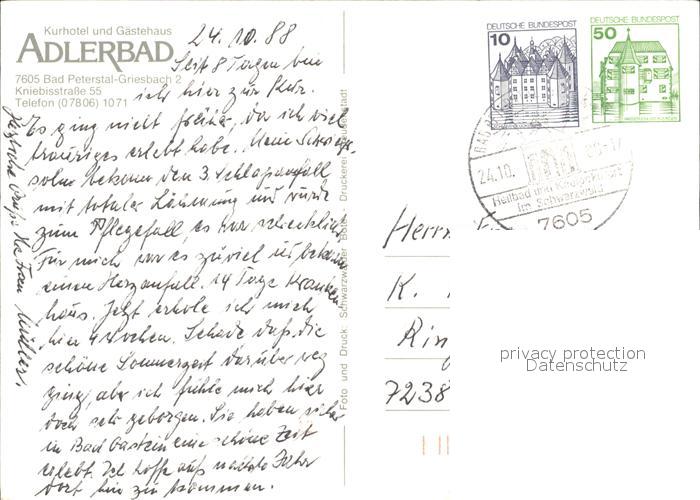 Kurhotel und Gästehaus
ADLERBAD
7605 Bad Peterstal-Griesbach 2
Kniebisstraße 55
Telefon (07806) 1071
24.10.88
Seit 8 Tagen bin
ich hier zur Kur.
Es ging nicht früher, da ich viel
trauriges erlebt habe. Mein Schwieger-
sohn bekam den 3. Schlaganfall
mit totaler Lähmung und wurde
zum Pflegefall, es war schrecklich
Für mich war es zuviel u bekam
einen Herzanfall. 14 Tage Kranken
haus. Jetzt erhole ich mich
hier 4 Wochen. Schade daß die
schöne Sommerzeit darüber weg
ging, aber ich fühle mich hier
doch sehr geborgen. Sie haben sicher
in Bad Gastein eine schöne Zeit
erlebt. Ich hoffe aufs nächste Jahr
dort hin zu kommen.
Herzliche Grüße Ihre Frau Müller.
Foto und Druck: Schwarzwälder Bote, Druckerei
DEUTSCHE BUNDESPOST
10
DEUTSCHE BUNDESPOST
50
24.10.
88-17
Heilbad und Kneippkurort
im Schwarzwald
7605
Herrn
K.
Rin
7238
privacy protection
Datenschutz